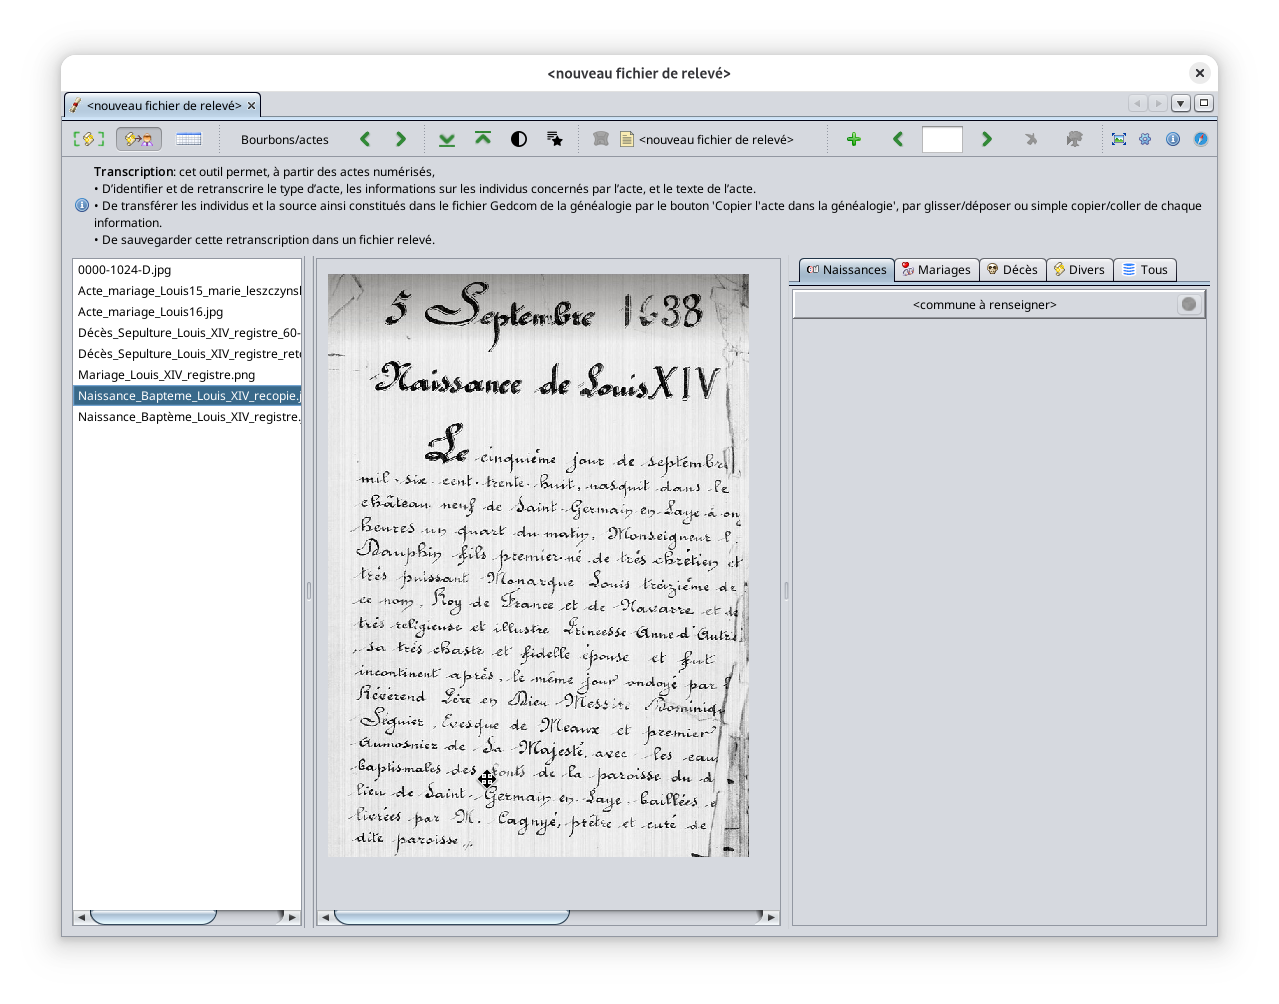 <nouveau fichier de relevé>
<nouveau fichier de relevé>
Bourbons/actes
<nouveau fichier de relevé>
Transcription: cet outil permet, à partir des actes numérisés,
• D'identifier et de retranscrire le type d'acte, les informations sur les individus concernés par l'acte, et le texte de l'acte.
• De transférer les individus et la source ainsi constitués dans le fichier Gedcom de la généalogie par le bouton 'Copier l'acte dans la généalogie', par glisser/déposer ou simple copier/coller de chaque
information.
• De sauvegarder cette retranscription dans un fichier relevé.
0000-1024-D.jpg
Acte_mariage_Louis15_marie_leszczynsl
Acte_mariage_Louis16.jpg
Décès_Sepulture_Louis_XIV_registre_60-
Décès_Sepulture_Louis_XIV_registre_reto
Mariage_Louis_XIV_registre.png
Naissance_Bapteme_Louis_XIV_recopie.j
Naissance_Baptème_Louis_XIV_registre.
5 Septembre 1638
Naissance de Louis XIV
Le cinquiéme jour de septembr
mil six cent trente huit, nasquit dans le
château neuf de Saint Germain en Laye à on
heures un quart du matin, Monseigneur l
Dauphin fils premier né de trés chrétien et
trés puissant Monarque Louis treiziéme de
ce nom, Roy de France et de Navarre et de
trés religieuse et illustre Princesse Anne d'Autri
sa trés chaste et fidelle épouse et fut
incontinent aprés, le même jour ondoyé par l
Révérend Pére en Dieu Messire Dominiqu
Séguier, Evesque de Meaux et premier
Aumosnier de Sa Majesté, avec les eau
baptismales des fonts de la paroisse du d
lieu de Saint Germain en Laye baillées e
livrées par M. Cagnyé, prêtre et curé de
dite paroisse.,
Naissances
Mariages
Décès
Divers
Tous
<commune à renseigner>